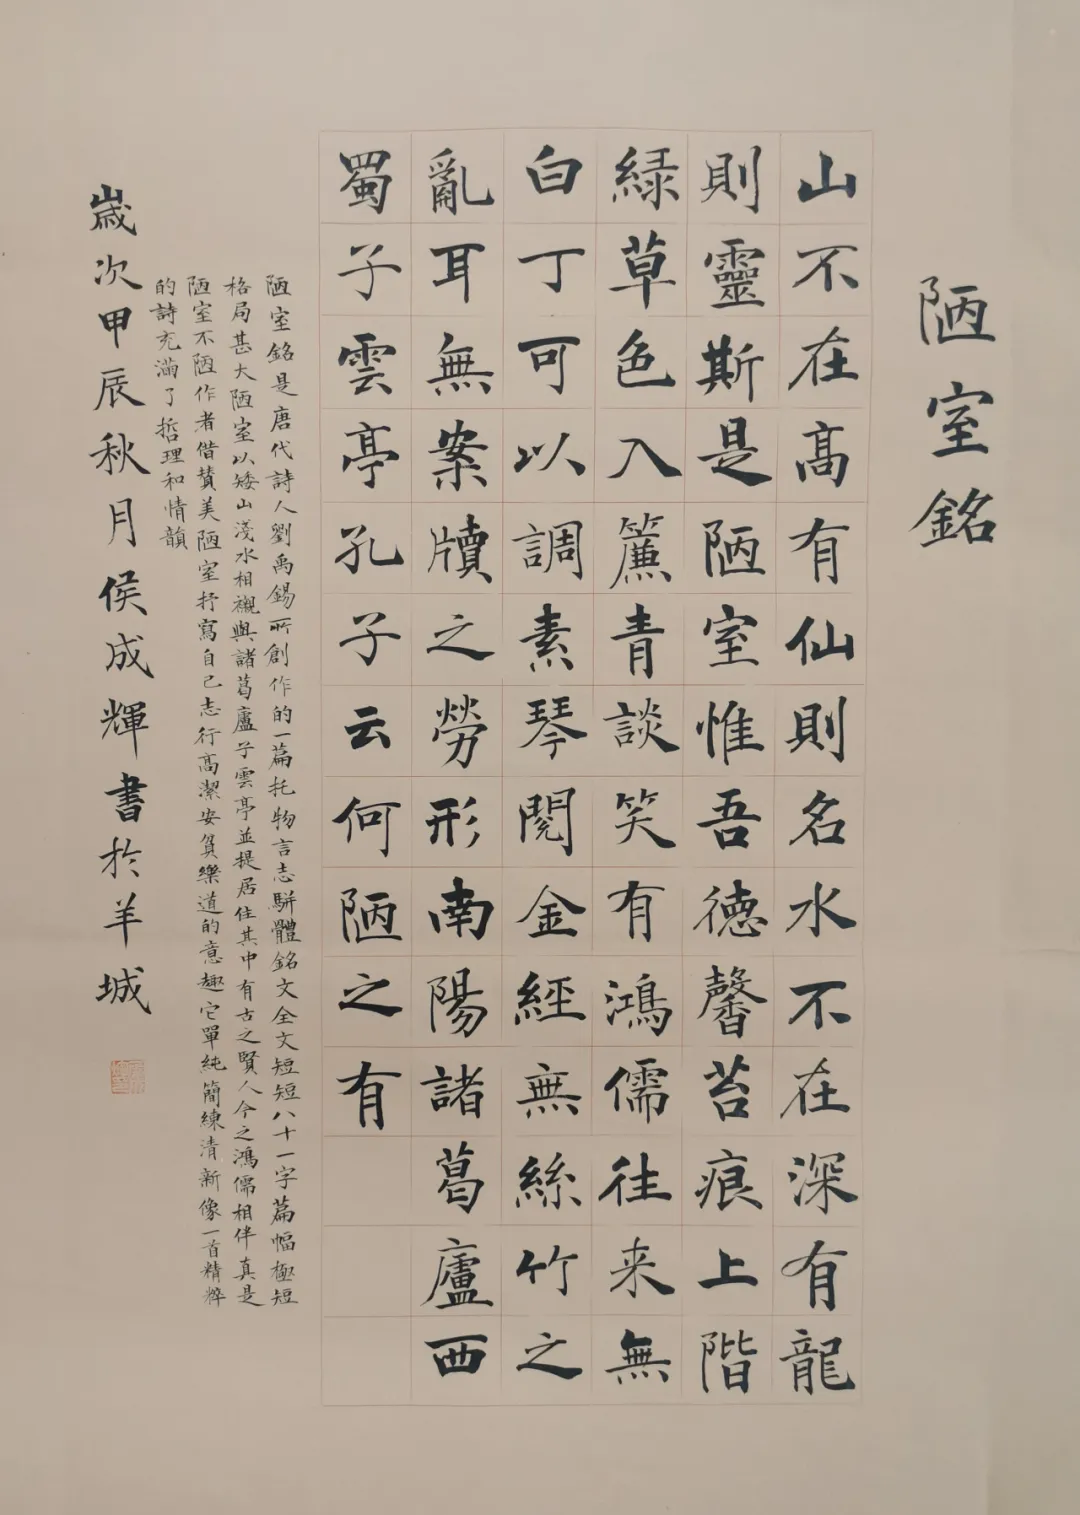 陋室銘
山不在高有仙則名水不在深有龍
則靈斯是陋室惟吾德馨苔痕上階
緑草色入簾青談笑有鴻儒往来無
白丁可以調素琴閲金經無絲竹之
亂耳無案牘之勞形南陽諸葛廬西
蜀子雲亭孔子云何陋之有
陋室銘是唐代詩人劉禹錫所創作的一篇托物言志駢體銘文全文短短八十一字篇幅極短
格局甚大陋室以矮山淺水相襯與諸葛廬子雲亭並提居住其中有古之賢人今之鴻儒相伴真是
陋室不陋作者借賛美陋室抒寫自己志行高潔安貧樂道的意趣它單純簡練清新像一首精粹
的詩充滿了哲理和情韻
歲次甲辰秋月侯成輝書於羊城